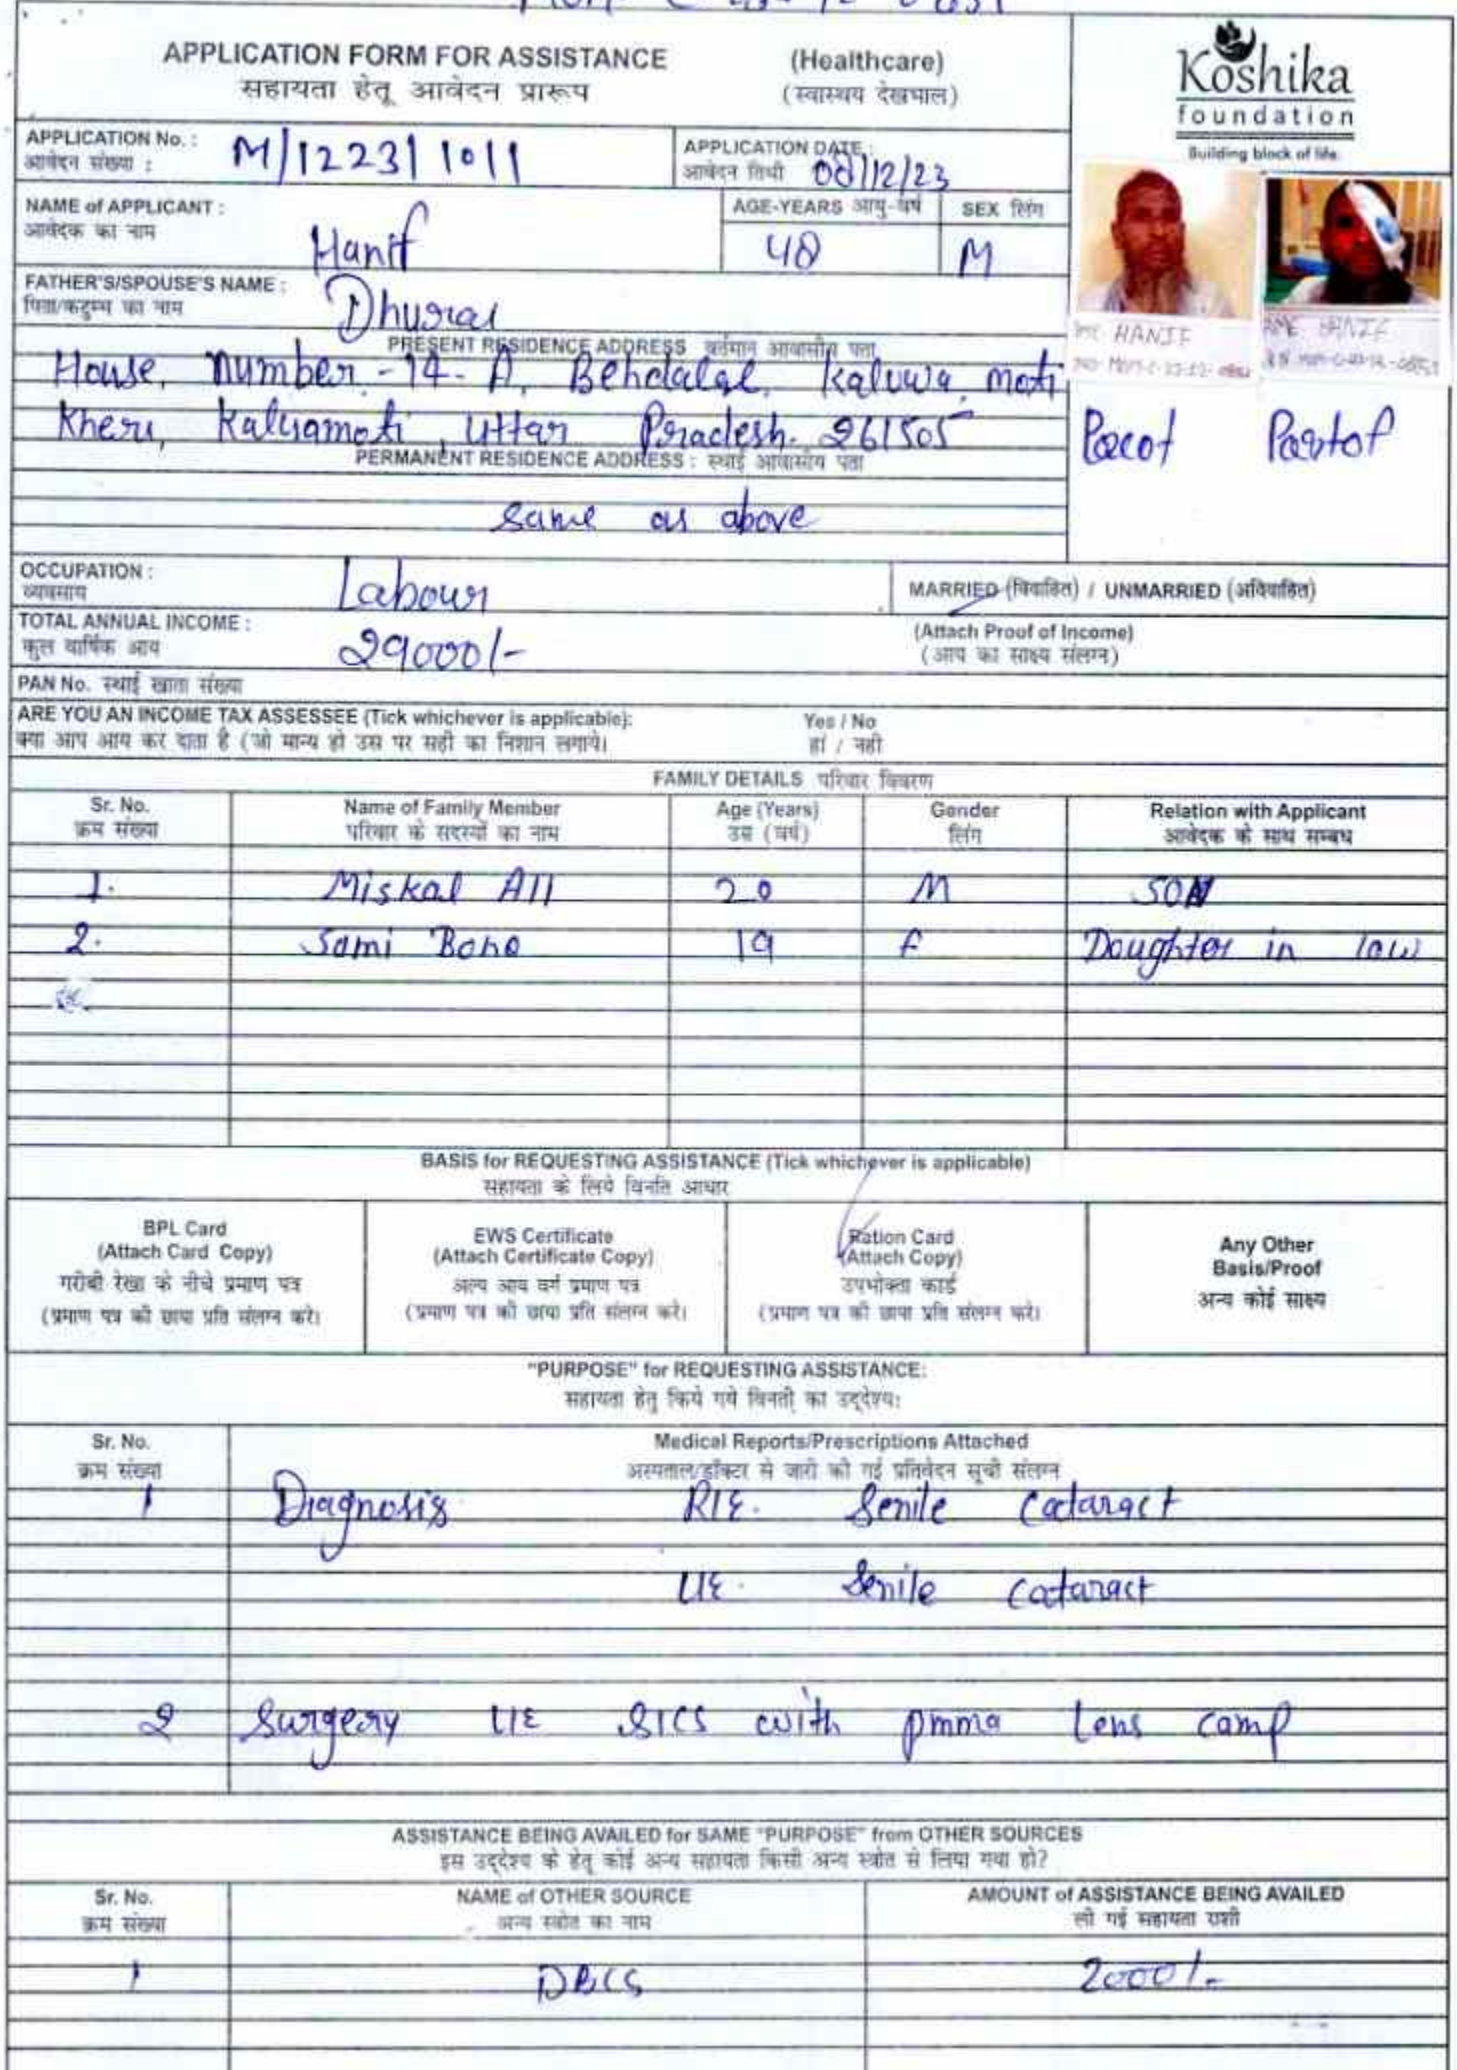 APPLICATION FORM FOR ASSISTANCE (Healthcare)
सहायता हेतू आवेदन प्रारूप (स्वास्थय देखभाल)
Koshika
foundation
Building block of life
APPLICATION No. : M/1223/1011
आवेदन संख्या :
APPLICATION DATE : 08/12/23
आवेदन तिथी
NAME of APPLICANT : Hanif
आवेदक का नाम
AGE-YEARS आयु-वर्ष 48
SEX लिंग M
FATHER'S/SPOUSE'S NAME : Dhurai
पिता/कटुम्ब का नाम
HANIF
HANIF
PRESENT RESIDENCE ADDRESS वर्तमान आवासीय पता
House, Number - 14 - A, Behdalal, Kaluwa, moti
Kheri, Kaluamoti, Uttar Pradesh. 261505
PERMANENT RESIDENCE ADDRESS : स्थाई आवासीय पता
same as above
OCCUPATION : Labour
व्यवसाय
MARRIED (विवाहित) / UNMARRIED (अविवाहित)
TOTAL ANNUAL INCOME : 29000/-
कुल वार्षिक आय
(Attach Proof of Income)
(आय का साक्ष्य संलग्न)
PAN No. स्थाई खाता संख्या
ARE YOU AN INCOME TAX ASSESSEE (Tick whichever is applicable): Yes / No
क्या आप आय कर दाता है (जो मान्य हो उस पर सही का निशान लगाये। हां / नही
FAMILY DETAILS परिवार विवरण
Sr. No. Name of Family Member Age (Years) Gender Relation with Applicant
क्रम संख्या परिवार के सदस्यों का नाम उम्र (वर्ष) लिंग आवेदक के साथ सम्बध
1. Miskal All 20 M SON
2. Sami Bono 19 F Doughter in law
BASIS for REQUESTING ASSISTANCE (Tick whichever is applicable)
सहायता के लिये विनति आधार
BPL Card
(Attach Card Copy)
गरीबी रेखा के नीचे प्रमाण पत्र
(प्रमाण पत्र की छाया प्रति संलग्न करे।
EWS Certificate
(Attach Certificate Copy)
अल्प आय वर्ग प्रमाण पत्र
(प्रमाण पत्र की छाया प्रति संलग्न करे।
Ration Card
(Attach Copy)
उपभोक्ता कार्ड
(प्रमाण पत्र की छाया प्रति संलग्न करे।
Any Other
Basis/Proof
अन्य कोई साक्ष्य
"PURPOSE" for REQUESTING ASSISTANCE:
सहायता हेतु किये गये विनती का उद्देश्य:
Sr. No. Medical Reports/Prescriptions Attached
क्रम संख्या अस्पताल/डॉक्टर से जारी की गई प्रतिवेदन सूची संलग्न
1 Diagnosis R/E. Senile Cataract
L/E. Senile Cataract
2 Surgery L/E SICS with pmma Lens camp
ASSISTANCE BEING AVAILED for SAME "PURPOSE" from OTHER SOURCES
इस उद्देश्य के हेतु कोई अन्य सहायता किसी अन्य स्त्रोत से लिया गया हो?
Sr. No. NAME of OTHER SOURCE AMOUNT of ASSISTANCE BEING AVAILED
क्रम संख्या अन्य स्त्रोत का नाम ली गई सहायता राशी
1 DBCS 2000/-